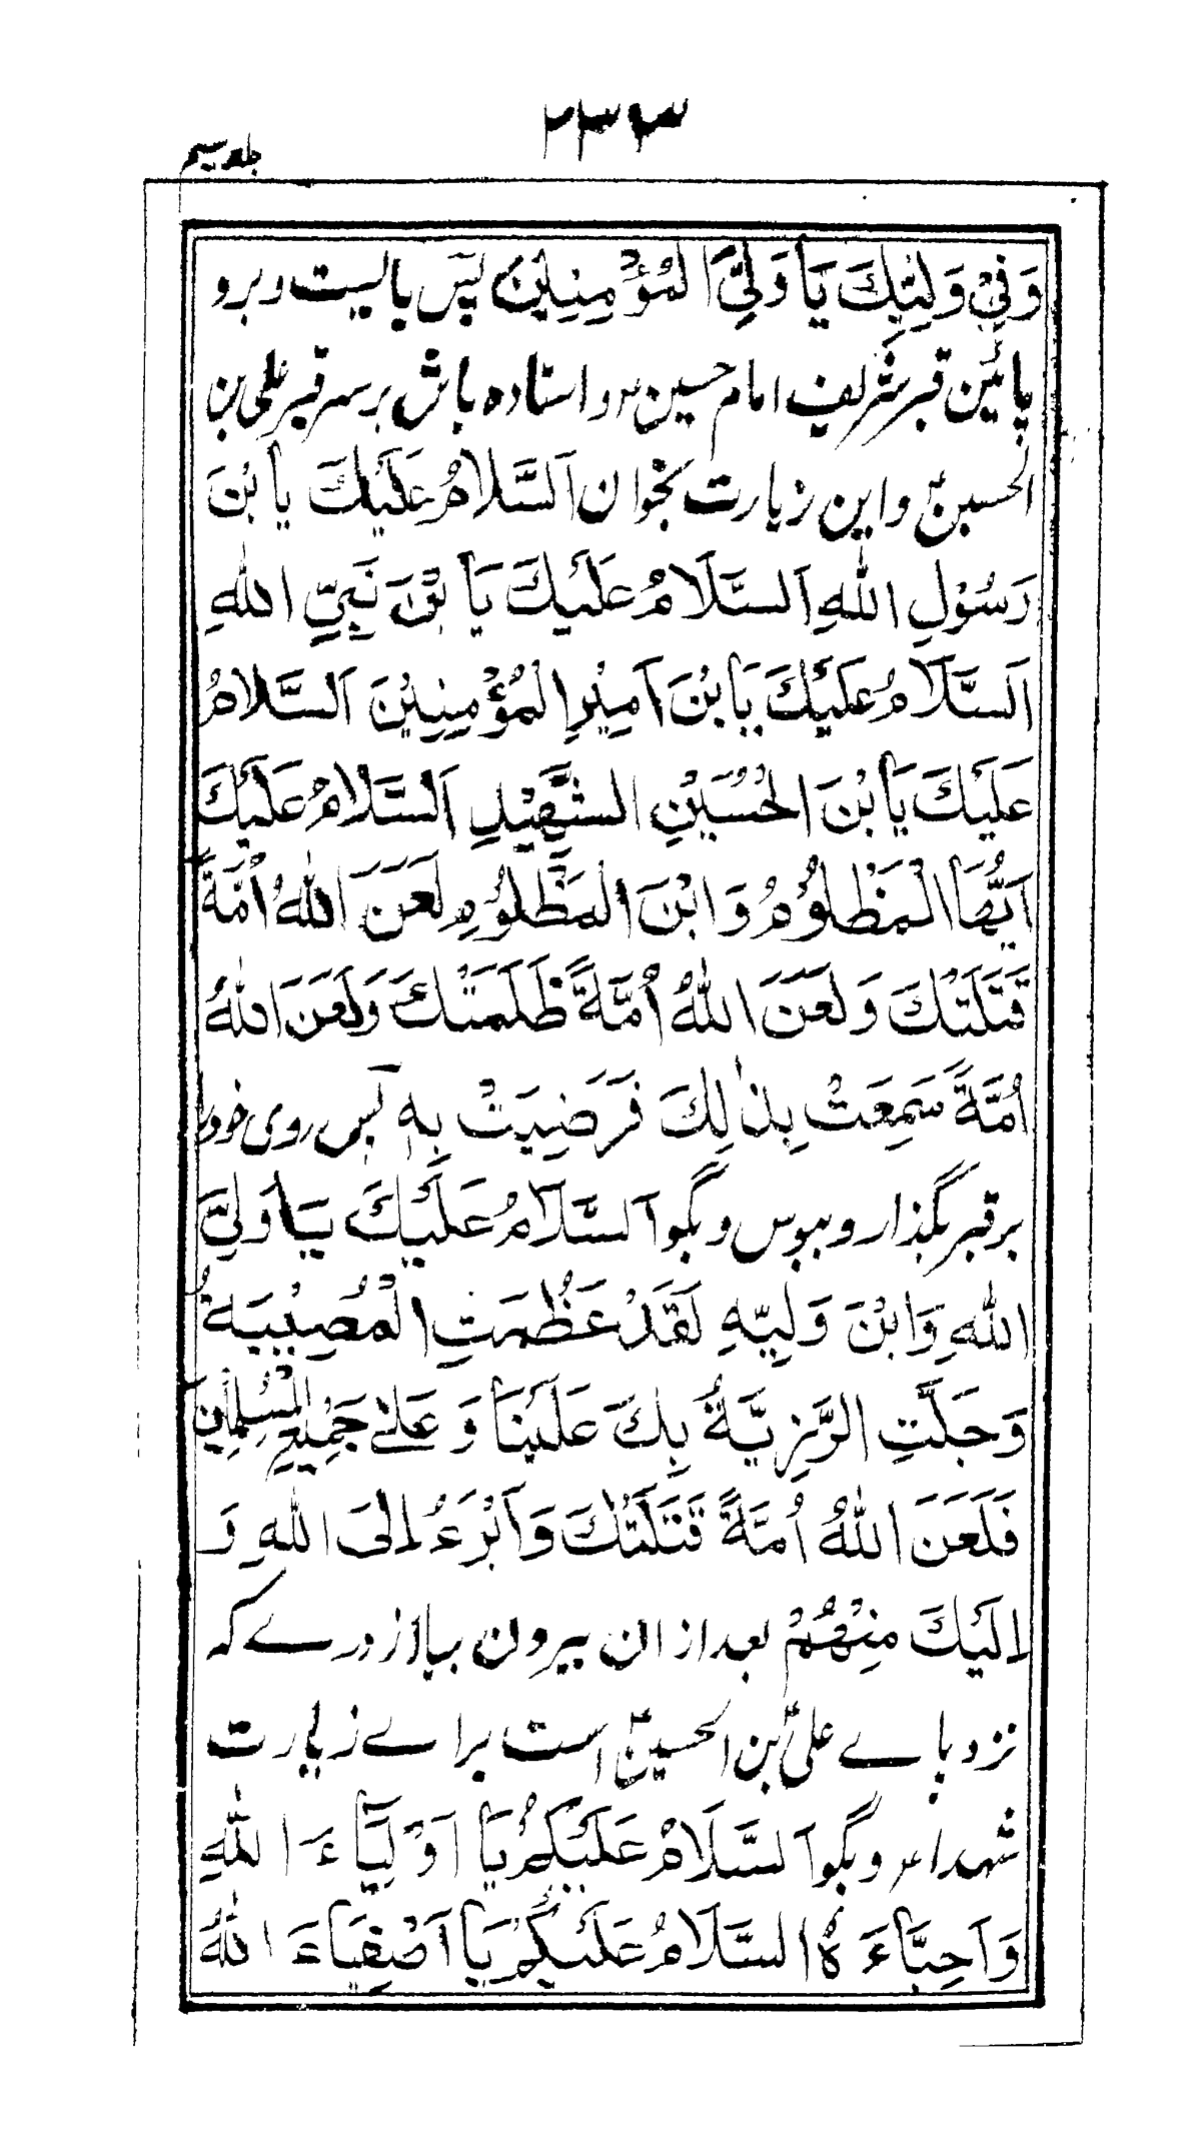 ۲۳۳
جلد سیم
وَفِيْ وَلِيِّكَ يَا وَلِيَّ الْمُؤْمِنِيْنَ پس بالیست و برو
پائین قبر شریف امام حسین ؑ و استاده باش بر سر قبر علی بن
الحسین ؑ و این زیارت بخوان اَلسَّلَامُ عَلَيْكَ يَا بْنَ
رَسُوْلِ اللّٰهِ اَلسَّلَامُ عَلَيْكَ يَا بْنَ نَبِيِّ اللّٰهِ
اَلسَّلَامُ عَلَيْكَ يَا بْنَ اَمِيْرِ الْمُؤْمِنِيْنَ اَلسَّلَامُ
عَلَيْكَ يَا بْنَ الْحُسَيْنِ الشَّهِيْدِ اَلسَّلَامُ عَلَيْكَ
اَيُّهَا الْمَظْلُوْمُ وَ ابْنَ الْمَظْلُوْمِ لَعَنَ اللّٰهُ اُمَّةً
قَتَلَتْكَ وَ لَعَنَ اللّٰهُ اُمَّةً ظَلَمَتْكَ وَ لَعَنَ اللّٰهُ
اُمَّةً سَمِعَتْ بِذٰلِكَ فَرَضِيَتْ بِهٖ پس روی خود را
بر قبر بگذار و ببوس و بگو اَلسَّلَامُ عَلَيْكَ يَا وَلِيَّ
اللّٰهِ وَ ابْنَ وَلِيِّهِ لَقَدْ عَظُمَتِ الْمُصِيْبَةُ
وَ جَلَّتِ الرَّزِيَّةُ بِكَ عَلَيْنَا وَ عَلٰى جَمِيْعِ الْمُسْلِمِيْنَ
فَلَعَنَ اللّٰهُ اُمَّةً قَتَلَتْكَ وَ اَبْرَءُ اِلَى اللّٰهِ وَ
اِلَيْكَ مِنْهُمْ بعد از ان بیرون بیا از درے که
نزد پاے علی ؑ بن الحسین ؑ است براے زیارت
شهداء ؑ و بگو اَلسَّلَامُ عَلَيْكُمْ يَا اَوْلِيَآءَ اللّٰهِ
وَ اَحِبَّآءَهُ السَّلَامُ عَلَيْكُمْ يَا اَصْفِيَآءَ اللّٰهِ